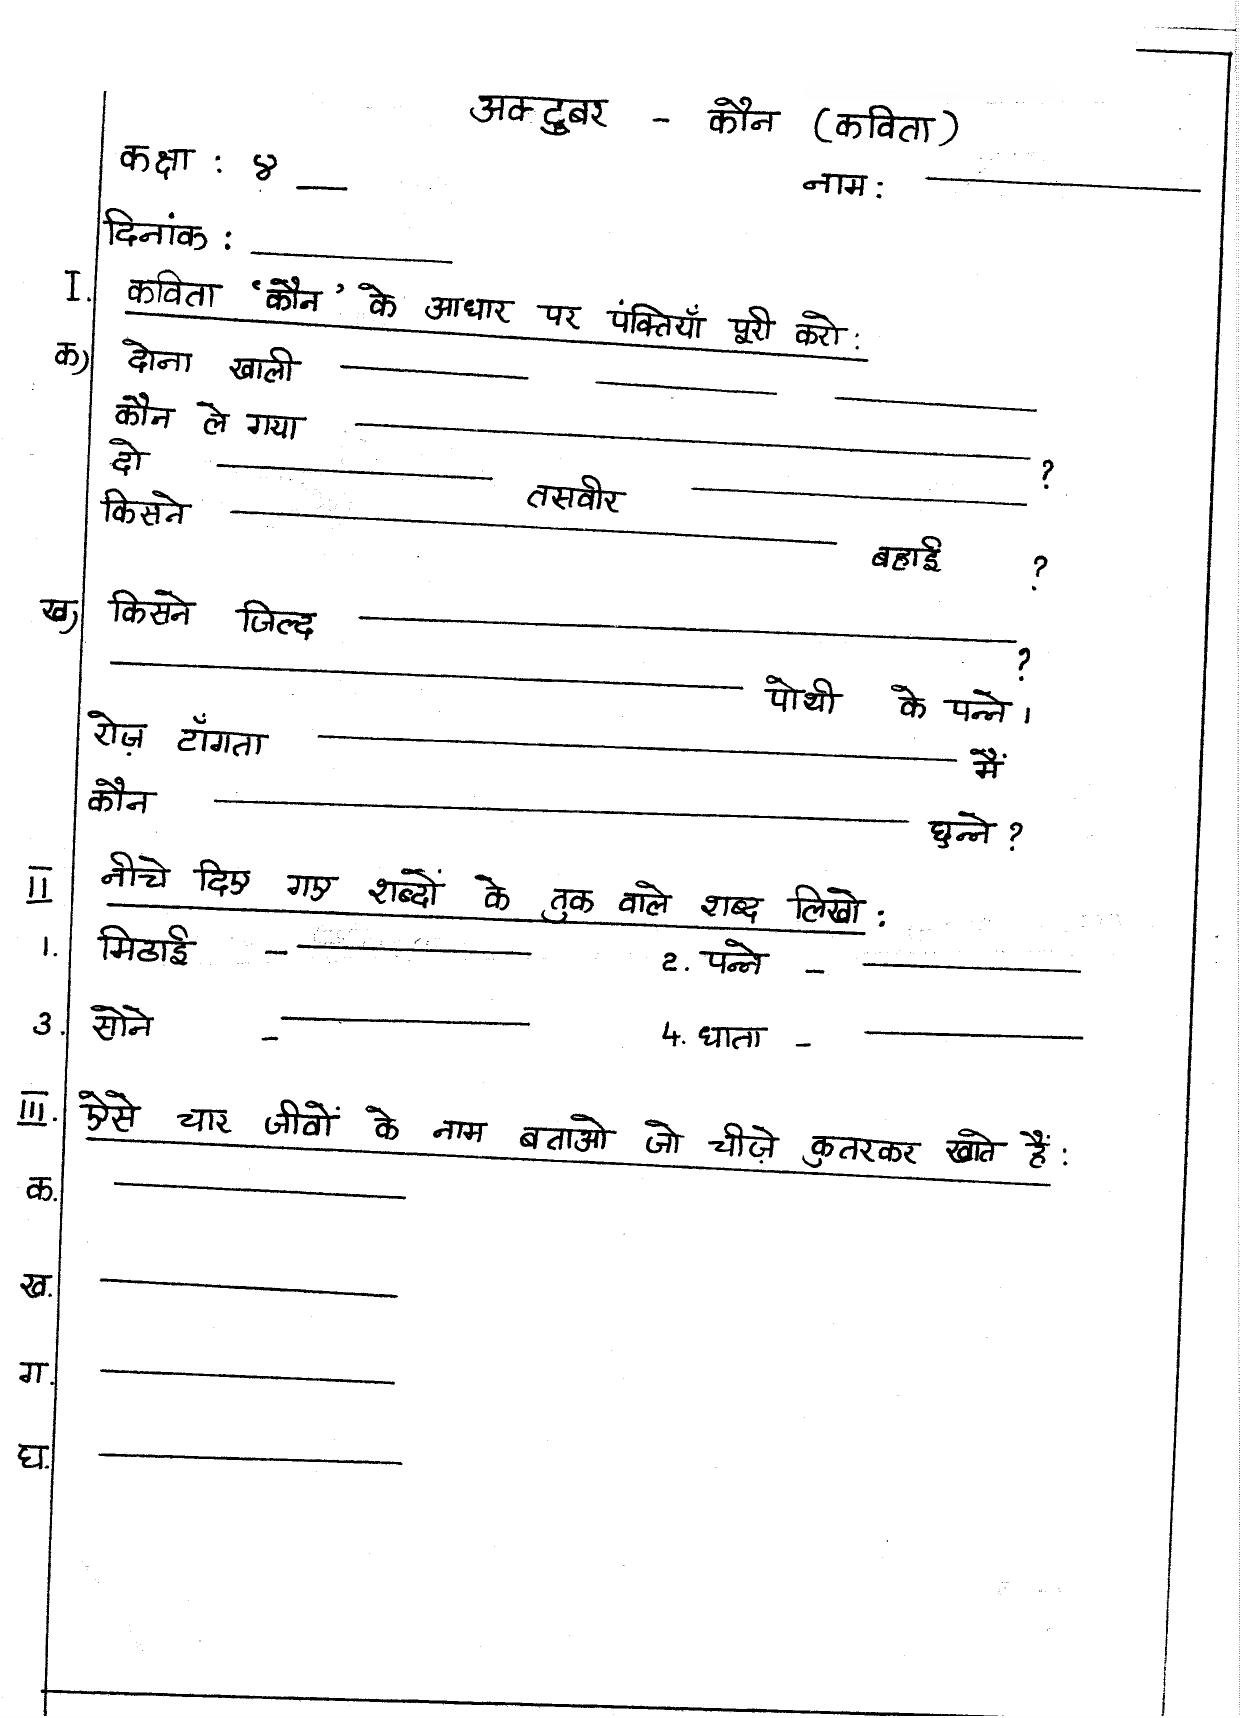 अक्टुबर - कौन (कविता)
कक्षा : ४ __
नाम : ____________
दिनांक : ____________
I. कविता ‘कौन’ के आधार पर पंक्तियाँ पूरी करो :
क) दोना खाली ________ ________ ________
कौन ले गया ____________________ ?
दो ____________ तसवीर ____________
किसने ____________________ बहाई ?
ख) किसने जिल्द ____________________ ?
____________________ पोथी के पन्ने ।
रोज़ टाँगता ____________________ मैं
कौन ____________________ घुन्ने ?
II नीचे दिए गए शब्दों के तुक वाले शब्द लिखो :
1. मिठाई - ____________ 2. पन्ने - ____________
3. सोने - ____________ 4. धाता - ____________
III. ऐसे चार जीवों के नाम बताओ जो चीज़े कुतरकर खाते हैं :
क. ____________
ख. ____________
ग. ____________
घ. ____________